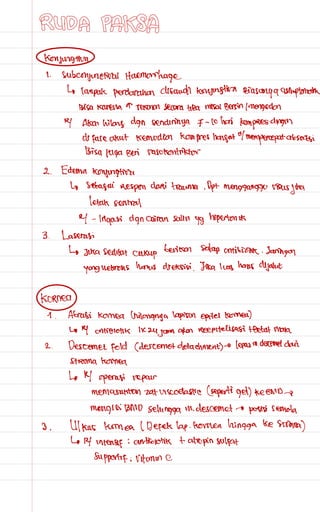 RUDA PAKSA
Konjungtiva
1. Subconjunctival Haemorrhage
↳ tampak perdarahan di konjungtiva biasanya
bisa karena ↑ tekanan secara tiba misal bersin / mengedan
R/ Akan hilang dgn sendirinya 7-10 hari kompres dingin
di fase akut kemudian kompres hangat u/ mempercepat absorbsi
bisa juga beri vasokonstriktor
2. Edema konjungtiva
↳ sebagai respon dari trauma. Dpt mengganggu visus jika
letak sentral
R/ - Irigasi dgn cairan salin yg hipertonik
3. Laserasi
↳ Jika sedikit cukup berikan salap antibiotik. Jaringan
yang nekrosis harus direksisi. Jika luas harus dijahit
Kornea
1. Abrasi kornea (hilangnya lapisan epitel kornea)
↳ R/ antibiotik 1x24 jam akan reepitelisasi + bebat mata
2. Descemet Fold (descemet detachment) → lepas m. descemet dari
stroma kornea
↳ R/ operasi repair
memasukkan zat viscoelastic (seperti gel) ke BMD →
mengisi BMD sehingga m. descemet → posisi semula
3. Ulkus kornea (Defek lap. kornea hingga ke stroma)
↳ R/ intensif : antibiotik + atropin sulfat
Supportif : Vitamin C